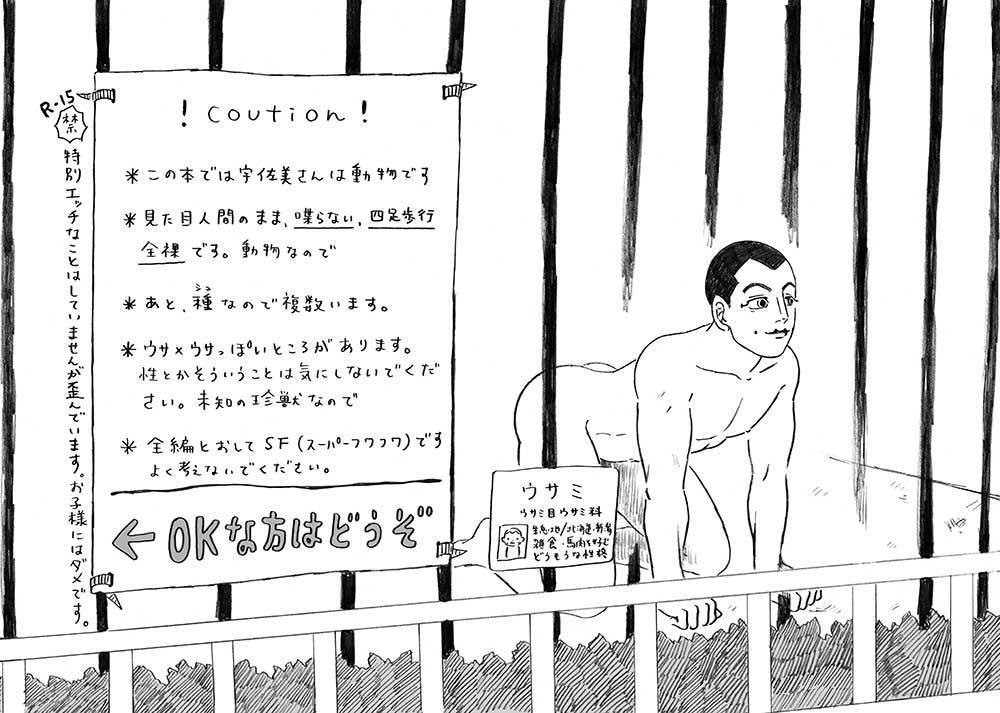 R-15
禁
特別エッチなことはしていませんが歪んでいます。お子様にはダメです。
! coution !
*この本では宇佐美さんは動物です
*見た目人間のまま、喋らない、四足歩行
全裸です。動物なので
*あと、種なので複数います。
シュ
*ウサ×ウサっぽいところがあります。
性とかそういうことは気にしないでくだ
さい。未知の珍獣なので
*全編とおしてSF(スーパーフワフワ)です
よく考えないでください。
←OKな方はどうぞ
ウサミ
ウサミ目ウサミ科
生息地/北海道・
雑食・馬肉を好む
どうもうな性格